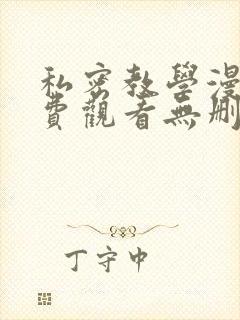 私密教學漫
費觀看無刪
丁守中